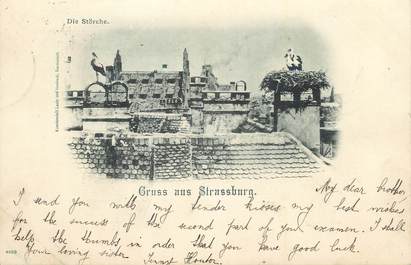 Die Störche.
Gruss aus Strassburg.
My dear brother
I send you with my tender kisses my best wishes
for the success of the second part of your examen. I shall
help the thumbs in order that you have good luck.
Your loving sister